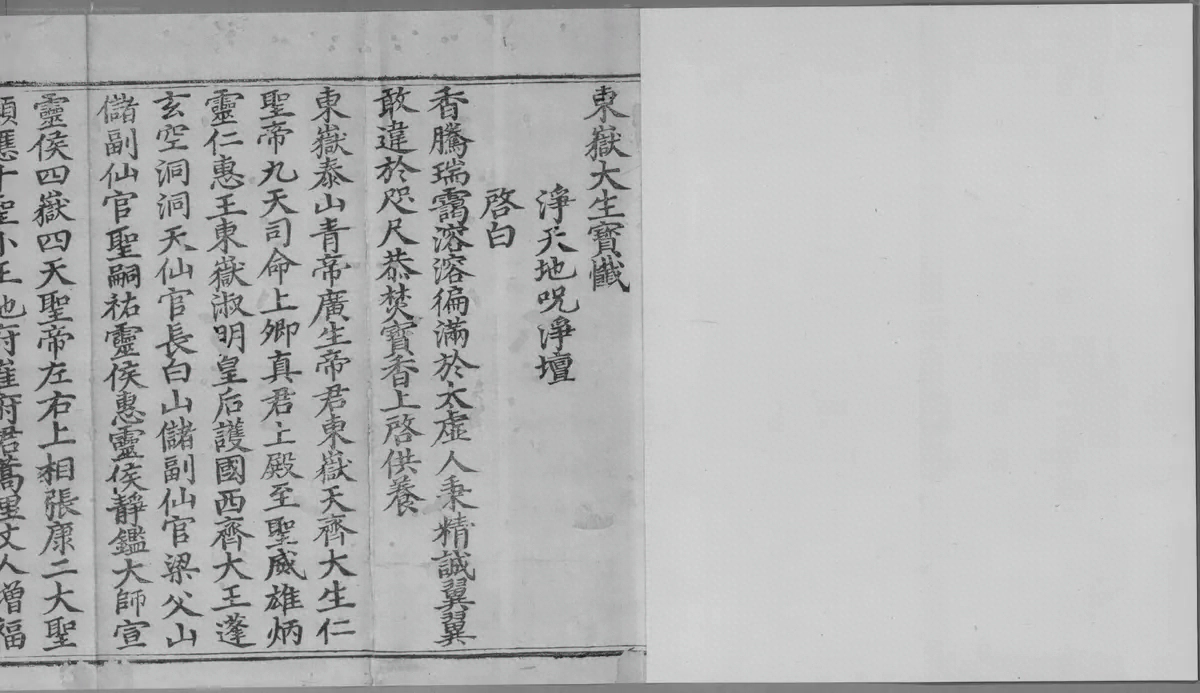 東嶽大生寶懺
淨天地呪淨壇
啓白
香騰瑞靄溶溶徧滿於太虛人秉精誠翼翼
敢違於咫尺恭焚寶香上啓供養
東嶽泰山青帝廣生帝君東嶽天齊大生仁
聖帝九天司命上卿真君上殿至聖威雄炳
靈仁惠王東嶽淑明皇后護國西齊大王蓬
玄空洞洞天仙官長白山儲副仙官梁父山
儲副仙官聖嗣祐靈侯惠靈侯靜鑑大師宣
靈侯四嶽四天聖帝左右上相張康二大聖
顯應十聖小王地府崔府君蒿里丈人增福